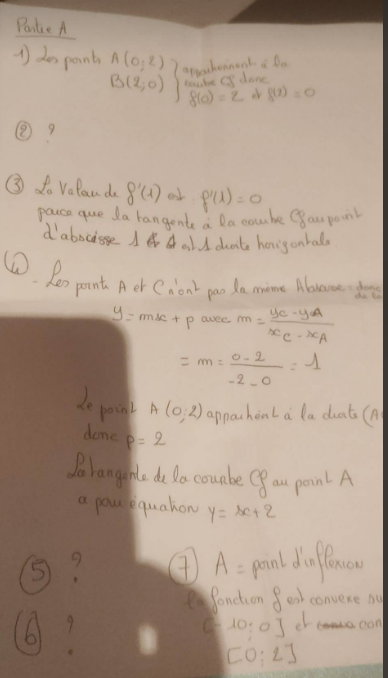 Partie A
1) Les points A(0;2)
B(2;0)
appartiennent à la
courbe Cf donc
f(0) = 2 et f(2) = 0
② ?
③ La Valeur de f'(1) est f'(1) = 0
parce que la tangente à la courbe Cf au point
d'abscisse 1 est 1 droite horizontale.
④
- Les points A et C n'ont pas la même Abscisse donc
y = mx + p avec m = yC - yA / xC - xA
= m = 0 - 2 / -2 - 0 = 1
Le point A (0;2) appartient à la droite (A
donc p = 2
La tangente de la courbe Cf au point A
a pour équation y = x + 2
⑤ ?
⑦ A = point d'inflexion
la fonction f est convexe su
[-10;0] et con
[0;2]
⑥ ?